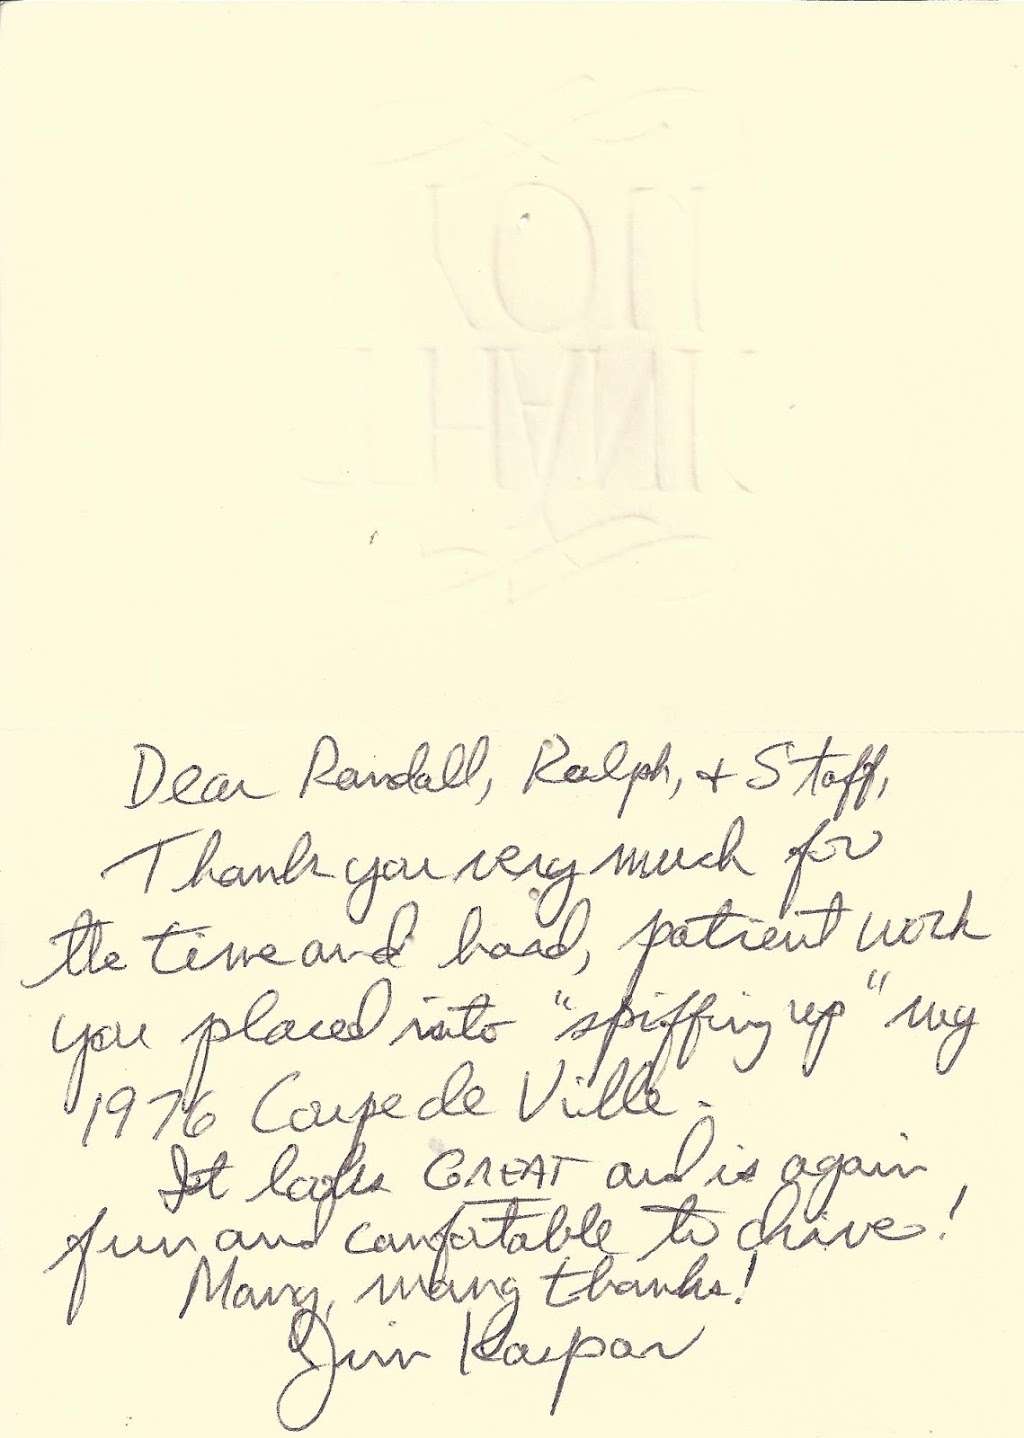 THANK
YOU
Dear Randall, Ralph, + Staff,
Thank you very much for
the time and hard, patient work
you placed into "spiffing up" my
1976 Coupe de Ville.
It looks GREAT and is again
fun and comfortable to drive!
Many, many thanks!
Jim Kaspar